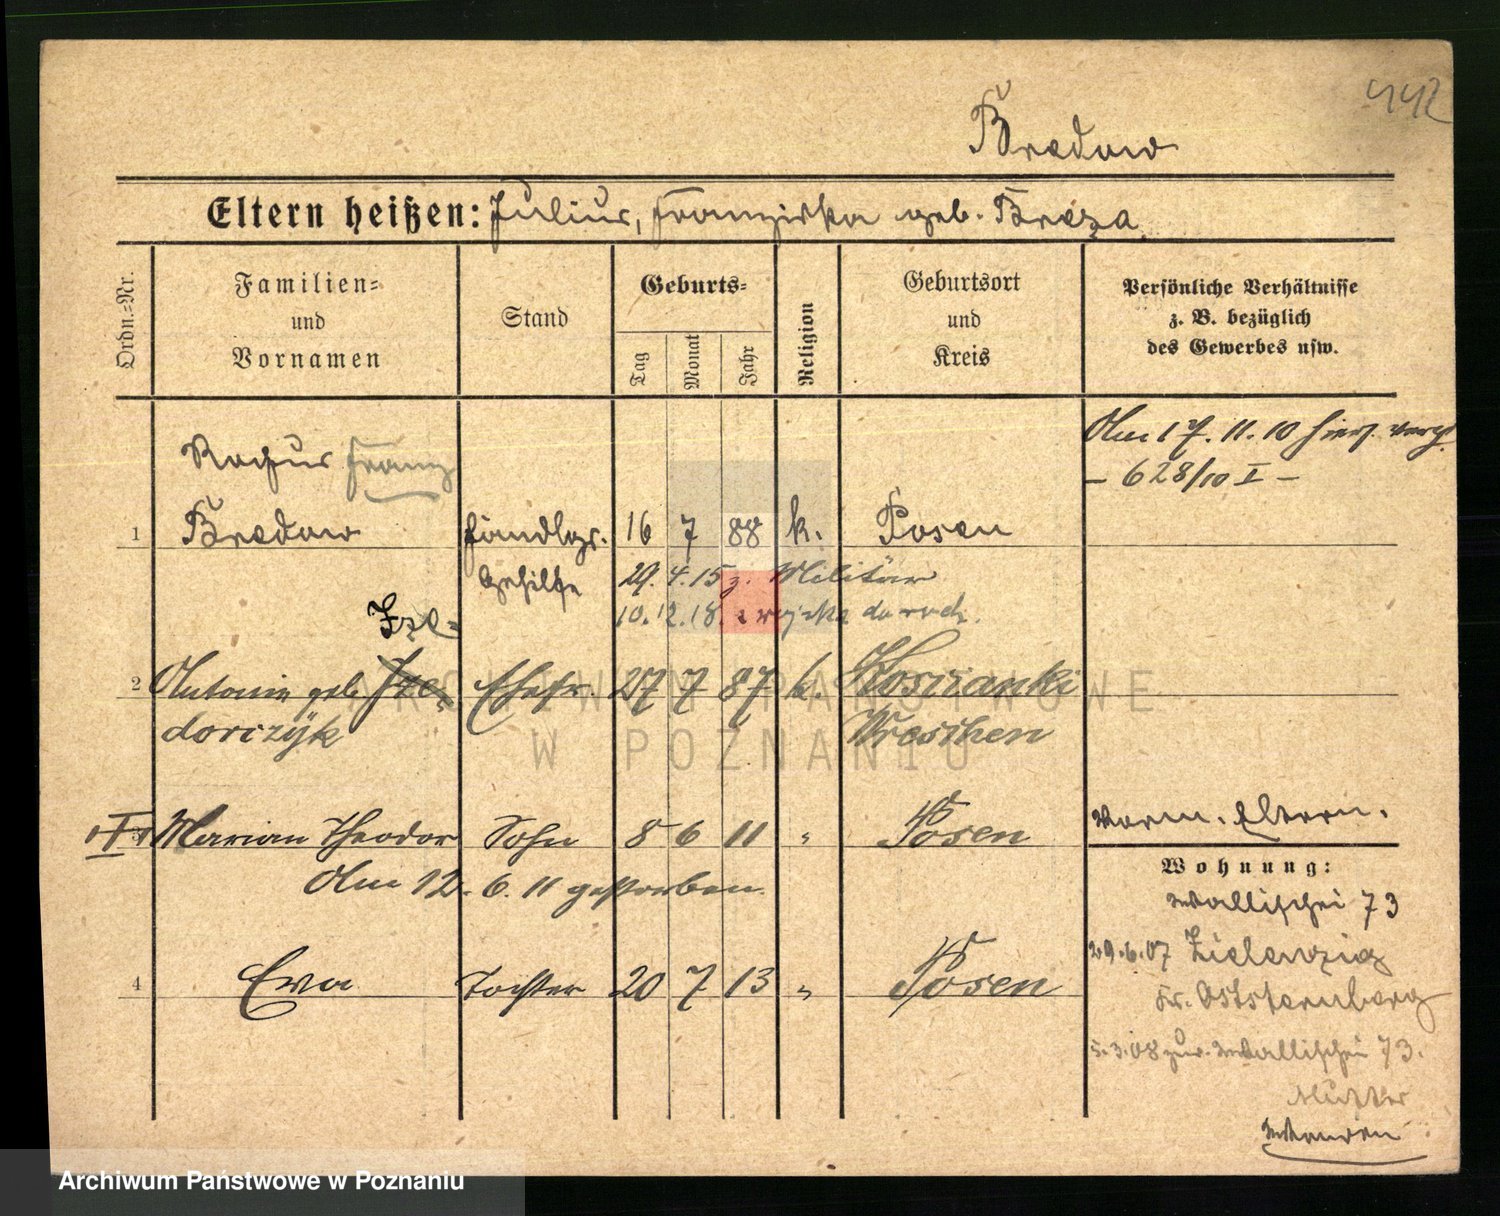 442
Bredow
Eltern heißen: Julius, Franziska geb. Breza
Ordn.-Nr.
Familien- und Vornamen
Stand
Geburts-
Tag
Monat
Jahr
Religion
Geburtsort und Kreis
Persönliche Verhältnisse z. B. bezüglich des Gewerbes usw.
Am 17. 11. 10 hier verh.
– 628/10 I –
Rochus Franz
1 Bredow Handlgs. 16 7 88 k. Posen
Gehilfe 29. 4. 15 z. Militär
10. 12. 18. z wojska do rodz.
Ize-
2 Antonie geb. Ize- Ehefr. 27 7 87 k. Koscianki
dorczÿk Wreschen
3 Marian Theodor Sohn 8 6 11 " Posen
Am 12. 6. 11 gestorben.
Vorm. Eltern.
Wohnung:
Wallischei 73
29.6.07 Zielenzig
Kr. Oststernberg
5.3.08 zur. Wallischei 73.
Mutter
4 Ewa Tochter 20 7 13 " Posen
ARCHIWUM PAŃSTWOWE
W POZNANIU
Archiwum Państwowe w Poznaniu